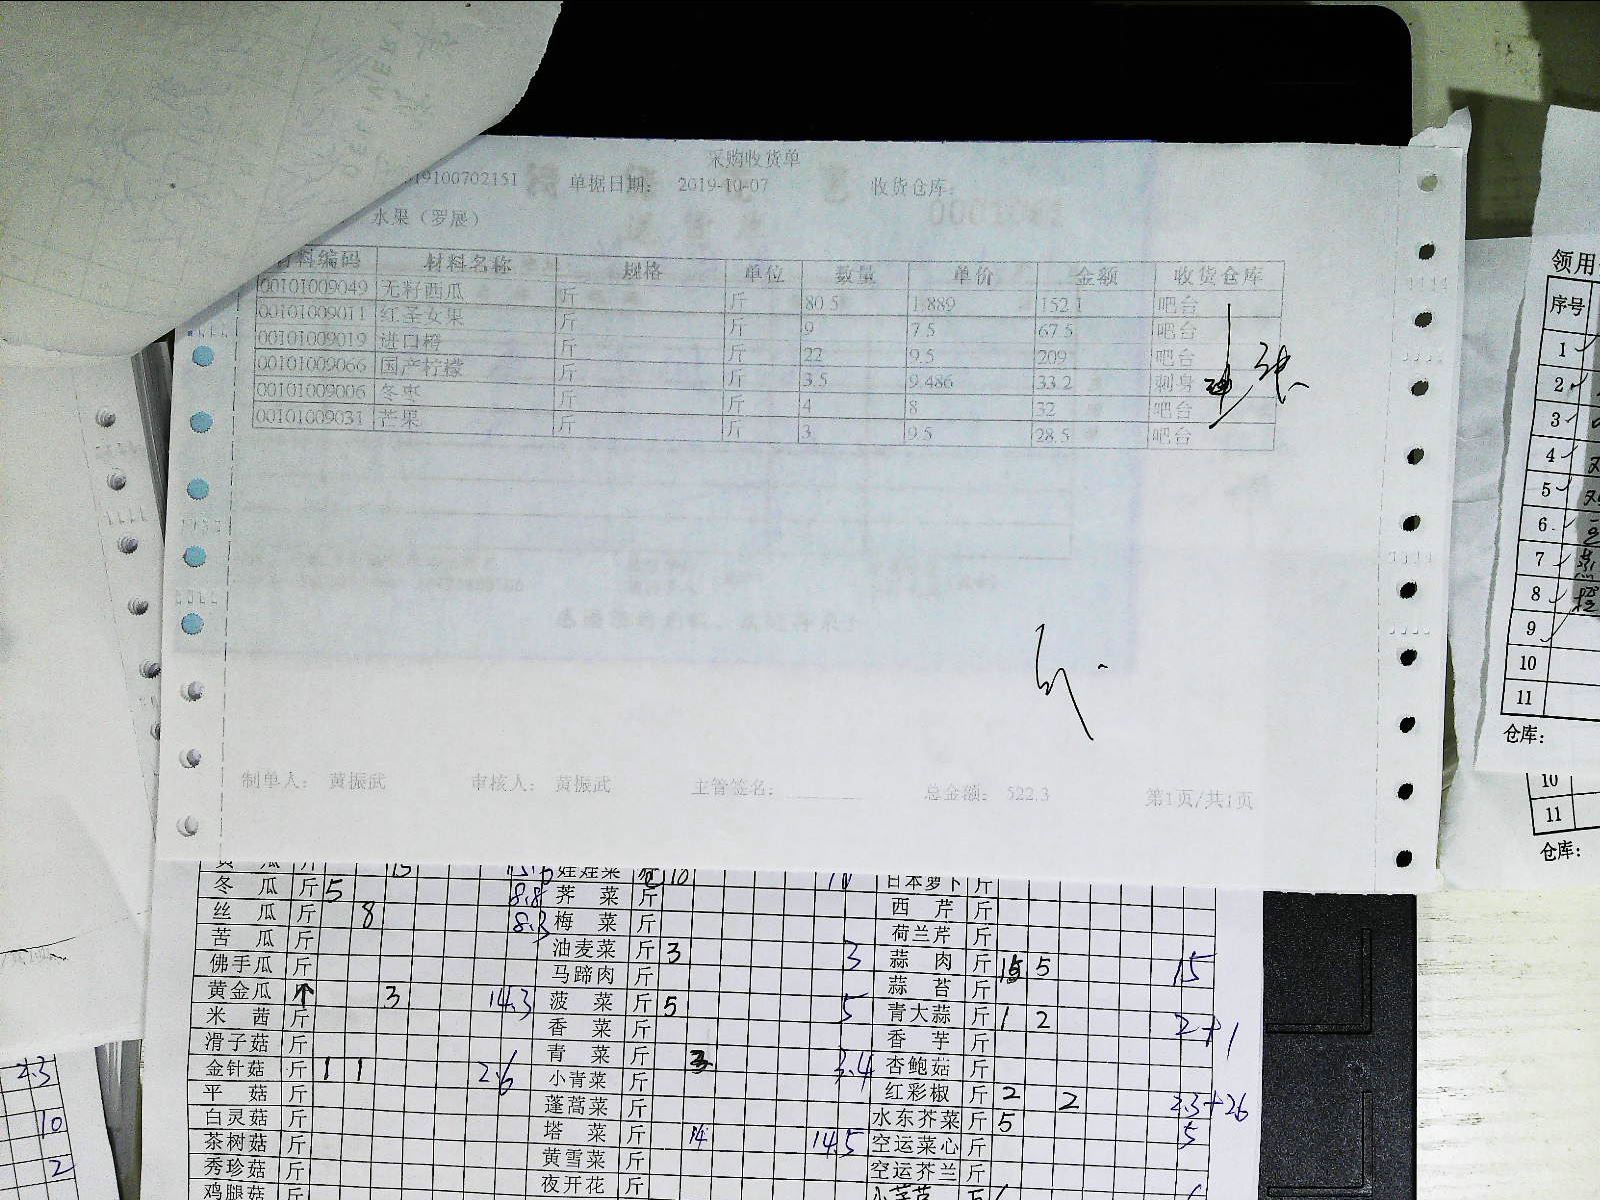 采购收货单
19100702151 单据日期： 2019-10-07 收货仓库：
水果（罗展）
材料编码 材料名称 规格 单位 数量 单价 金额 收货仓库
00101009049 无籽西瓜 斤 斤 80.5 1.889 152.1 吧台
00101009011 红圣女果 斤 斤 9 7.5 67.5 吧台
00101009019 进口橙 斤 斤 22 9.5 209 吧台
00101009066 国产柠檬 斤 斤 3.5 9.486 33.2 刺身
00101009006 冬枣 斤 斤 4 8 32 吧台
00101009031 芒果 斤 斤 3 9.5 28.5 吧台
制单人： 黄振武 审核人： 黄振武 主管签名： 总金额： 522.3 第1页/共1页
娃娃菜 10 日本萝卜 斤
冬瓜 斤 5 8.8 荠菜 斤 西芹 斤
丝瓜 斤 8 8.3 梅菜 斤 荷兰芹 斤
苦瓜 斤 油麦菜 斤 3 3 蒜肉 斤 5 15
佛手瓜 斤 马蹄肉 斤 蒜苔 斤
黄金瓜 个 3 14.3 菠菜 斤 5 5 青大蒜 斤 1 2 2+1
米茜 斤 香菜 斤 香芋 斤
滑子菇 斤 青菜 斤 3 3.4 杏鲍菇 斤
金针菇 斤 1 1 2.6 小青菜 斤 红彩椒 斤 2 2 2.3+26
平菇 斤 蓬蒿菜 斤 水东芥菜 斤 5 5
白灵菇 斤 塔菜 斤 14 14.5 空运菜心 斤
茶树菇 斤 黄雪菜 斤 空运芥兰 斤
秀珍菇 斤 夜开花 斤
鸡腿菇 斤
领用
序号
1
2
3
4
5
6
7
8
9
10
11
仓库：
10
11
仓库：
2.3
10
2